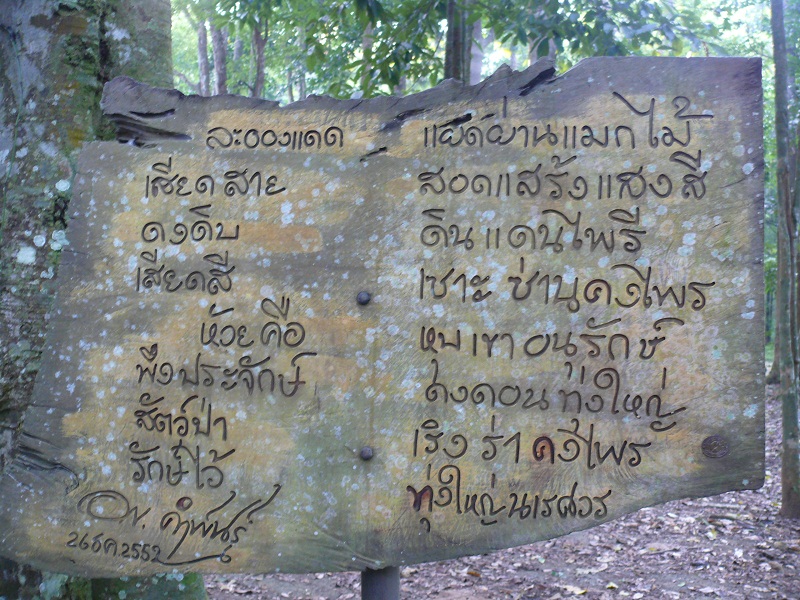 ละอองแดด แยดผ่านแมกไม้
เสียดสาย สอดแสร้งแสงสี
ดงดิบ ดินแดนไพรี
เสียดสี เซาะซ่านดงไพร
ห้วยคือ หุบเขาอนุรักษ์
พึงประจักษ์ ดงดอนทุ่งใหญ่
สัตว์ป่า เริงร่าดงไพร
รักษ์ไว้ ทุ่งใหญ่นเรศวร
26 ธค. 2552